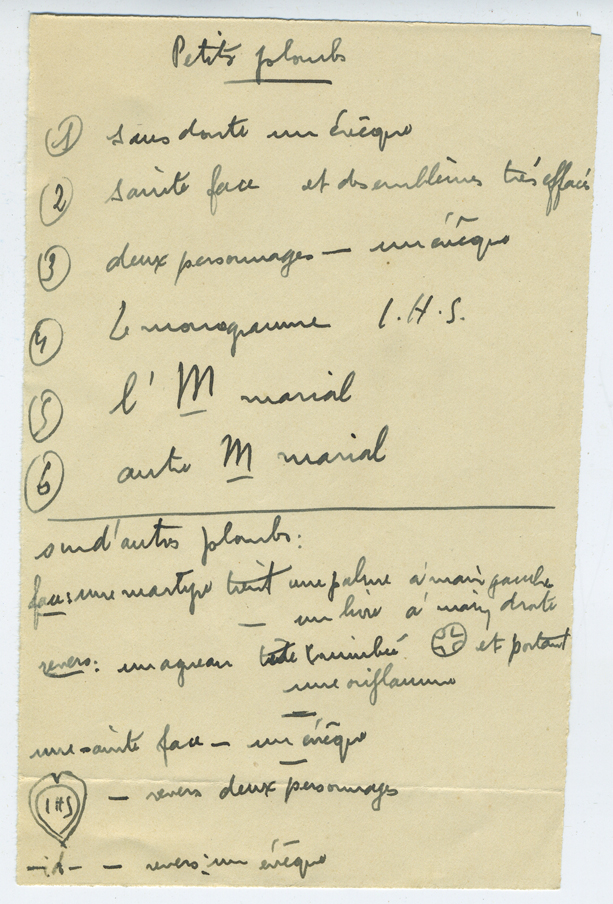 Petits plombs
1 sans doute un évêque
2 sainte face et des emblèmes très effacés
3 deux personnages — un évêque
4 le monogramme I.H.S.
5 l' M marial
6 autre M marial
sur d'autres plombs:
face: une martyre tient une palme à main gauche
— un livre à main droite
revers: un agneau nimbé et portant
une oriflamme
une sainte face — un évêque
IHS — revers deux personnages
— id — — revers: un évêque